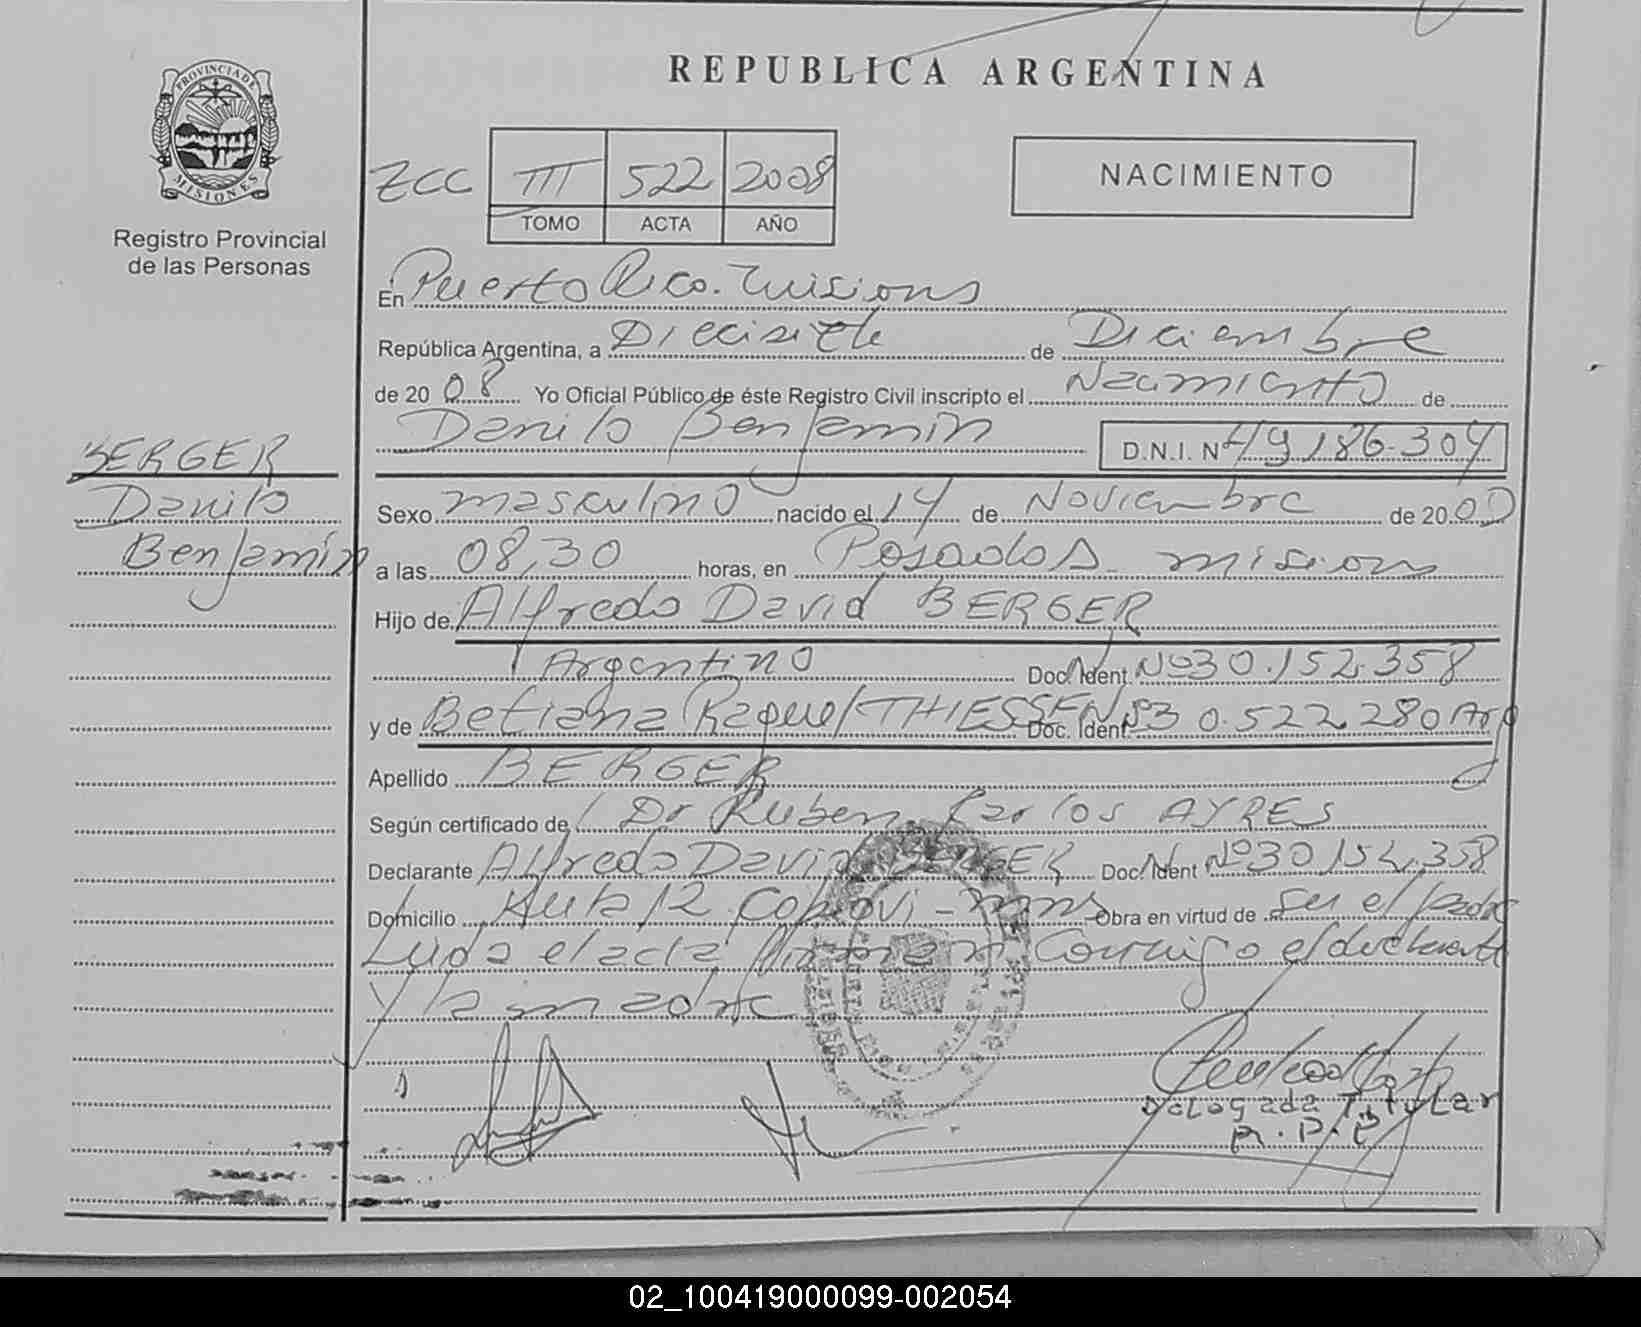 REPUBLICA ARGENTINA
PROVINCIA DE
MISIONES
Registro Provincial
de las Personas
ZCC III 522 2008
TOMO ACTA AÑO
NACIMIENTO
En Puerto Rico. Misiones
República Argentina, a Diecisiete de Diciembre
de 20 08 Yo Oficial Público de éste Registro Civil inscripto el Nacimiento de
Danilo Benjamin D.N.I. Nº 49.186.304
BERGER
Danilo
Benjamín
Sexo masculino nacido el 14 de Noviembre de 20 0
a las 08,30 horas, en Posadas misiones
Hijo de Alfredo David BERGER
Argentino Doc. Ident. Nº 30.152.358
y de Betiana Raquel THIESSEN Doc. Ident. Nº 30.522.280 Arg
Apellido BERGER
Según certificado de Dr Ruben Carlos AYRES
Declarante Alfredo David BERGER Doc. Ident Nº 30.152.358
Domicilio Ruta 12 Capiovi - Mnes Obra en virtud de ser el padre
Leida el acta firman Conmigo el declarante
y la madre
Delegada Titular
R.P.P
02_100419000099-002054